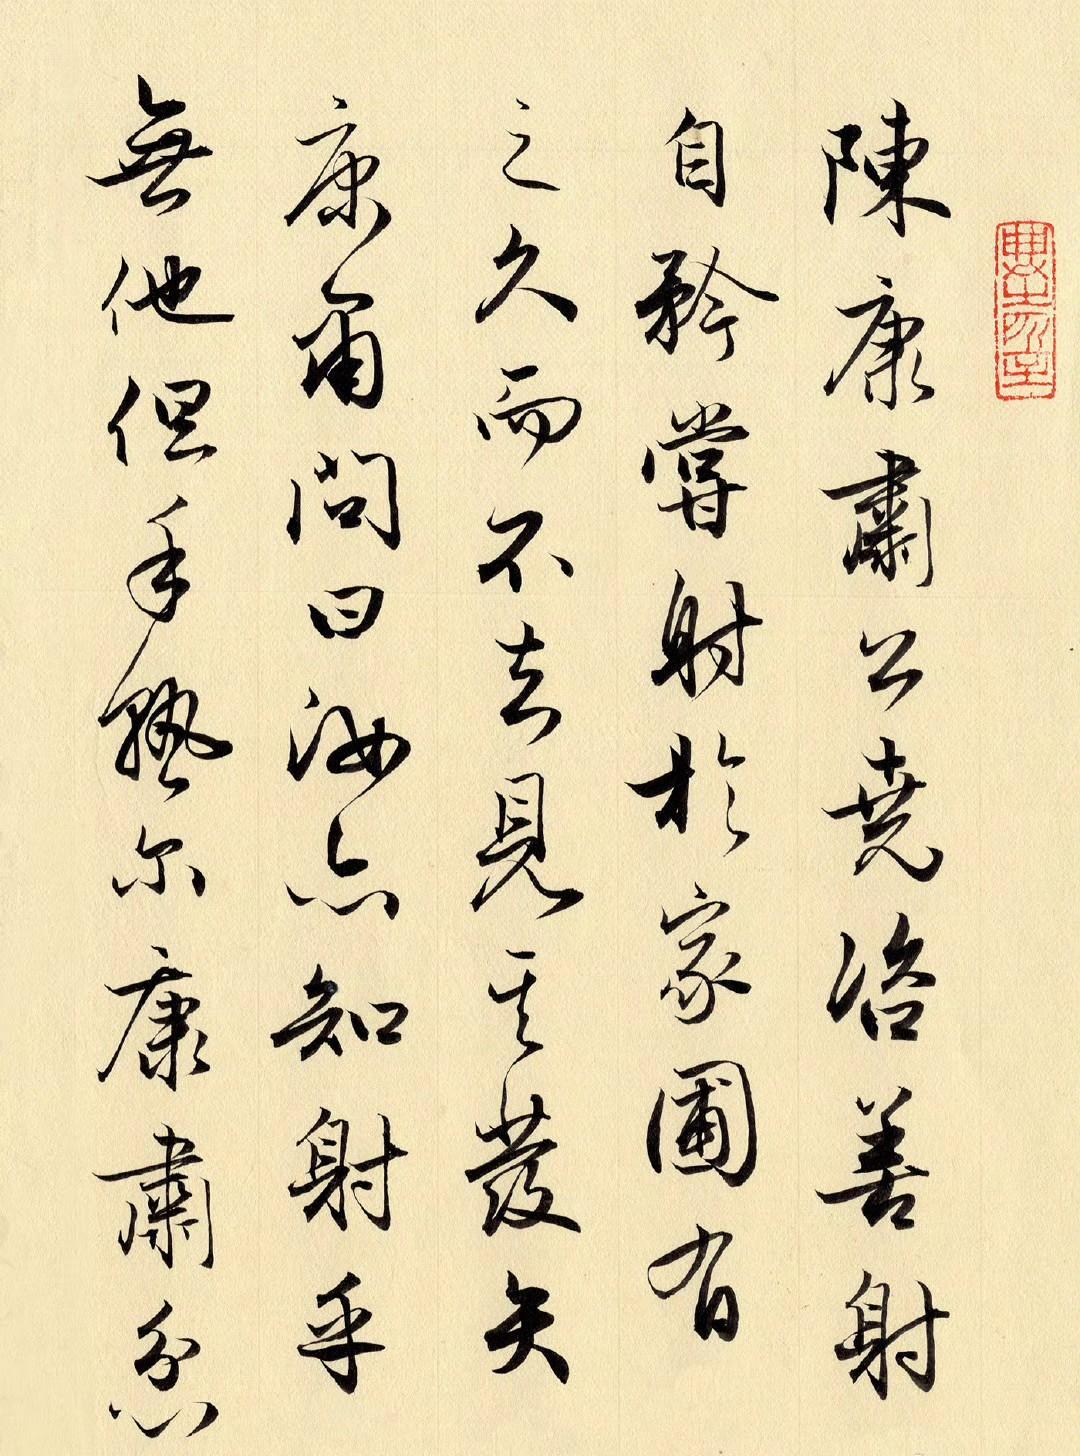 陳康肅公堯咨善射
自矜嘗射於家圃有
之久而不去見其發矢
康肅問曰汝亦知射乎
無他但手熟尔康肅忿